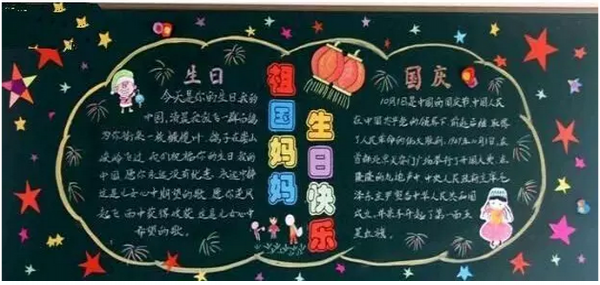 生日
今天是你的生日我的
中国,清晨我放飞一群白鸽
为你衔来一枚橄榄叶 鸽子在崇山
峻岭飞过 我们祝福你的生日 我的
中国 愿你永远没有忧患 永远宁静
这是儿女心中期望的歌
起飞 而中获得收获 这是儿女心中
希望的歌
祖国妈妈
生日快乐
国庆
10月1日是中国的国庆节 中国人民
在中国共产党的领导下 前赴后继 取得
了人民革命的伟大胜利 1949年10月1日 在
首都北京天安门广场举行了开国大典 在
隆隆的礼炮声中 中央人民政府主席毛
泽东 宣布中华人民共和国
成立 并亲手升起了第一面五
星红旗